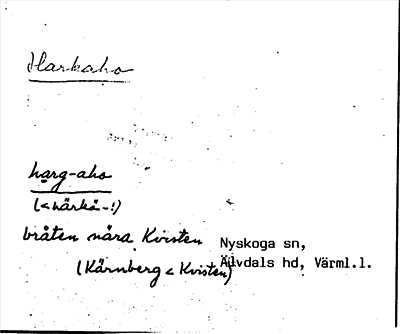 Harkaho
harg-aho
(< härkä-!)
bråten nära Kvisten Nyskoga sn,
(Kärnberg < Kvisten) Älvdals hd, Värml.l.